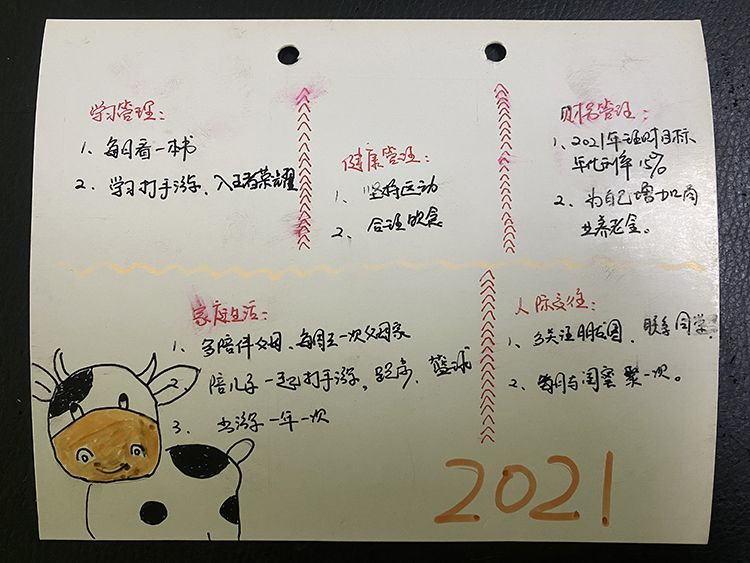 学习管理：
1、每日看一本书
2、学习打手游、入王者荣耀
健康管理：
1、坚持运动
2、合理饮食
财务管理：
1、2021年理财目标
年化利率15%
2、为自己增加商
业养老金。
家庭生活：
1、多陪伴父母、每周去一次父母家
2、陪儿子一起打手游，跑步、篮球
3、出游一年一次
人际交往：
1、多关注朋友圈、联系同学
2、每月与闺蜜聚一次。
2021